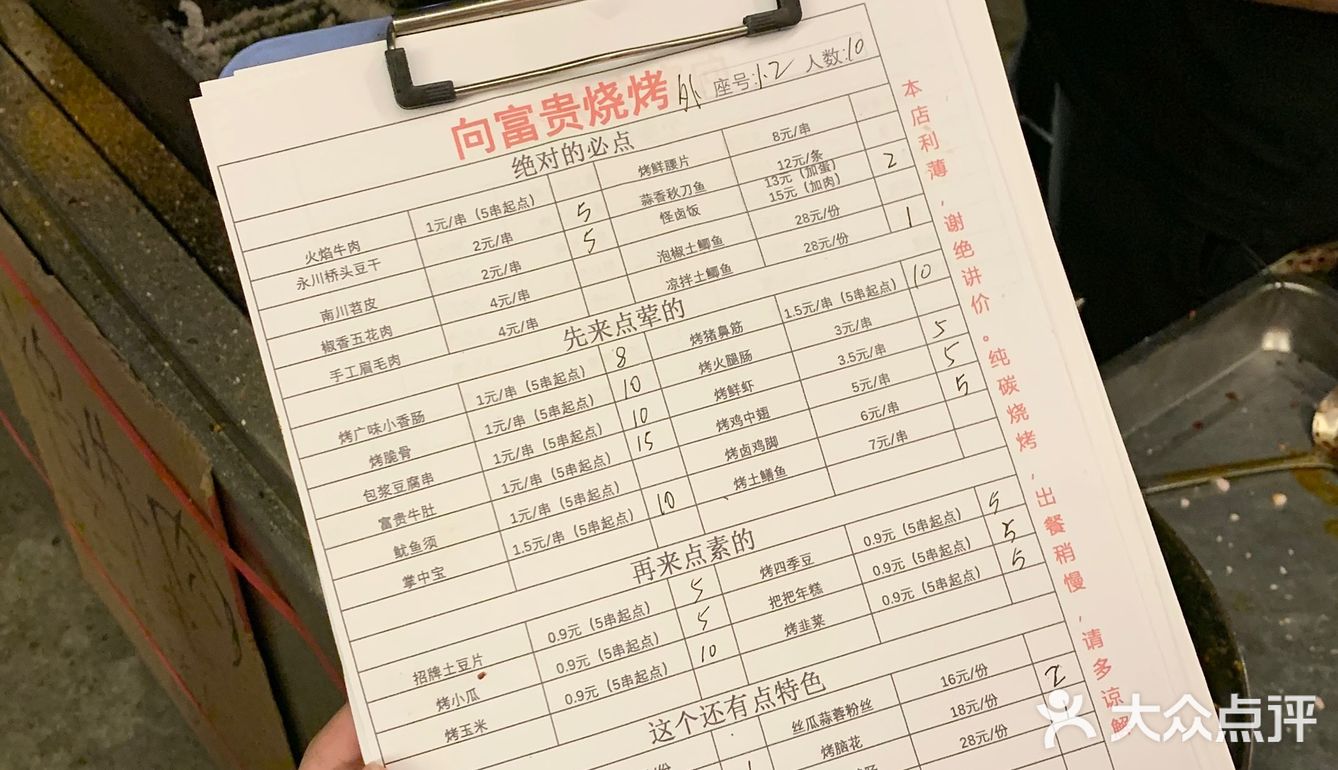 向富贵烧烤 外 座号:1.2 人数:10
绝对的必点
火焰牛肉 1元/串（5串起点） 烤鲜腰片 8元/串
永川桥头豆干 2元/串 5 蒜香秋刀鱼 12元/条
南川苕皮 2元/串 5 怪卤饭 13元（加蛋） 15元（加肉） 2
椒香五花肉 4元/串 泡椒土鲫鱼 28元/份
手工眉毛肉 4元/串 凉拌土鲫鱼 28元/份 1
先来点荤的
烤广味小香肠 1元/串（5串起点） 8 烤猪鼻筋 1.5元/串（5串起点） 10
烤脆骨 1元/串（5串起点） 10 烤火腿肠 3元/串
包浆豆腐串 1元/串（5串起点） 10 烤鲜虾 3.5元/串 5
富贵牛肚 1元/串（5串起点） 15 烤鸡中翅 5元/串 5
鱿鱼须 1元/串（5串起点） 烤卤鸡脚 6元/串 5
掌中宝 1.5元/串（5串起点） 10 烤土鳝鱼 7元/串
再来点素的
招牌土豆片 0.9元（5串起点） 5 烤四季豆 0.9元（5串起点） 5
烤小瓜 0.9元（5串起点） 5 把把年糕 0.9元（5串起点） 5
烤玉米 0.9元（5串起点） 10 烤韭菜 0.9元（5串起点） 5
这个还有点特色
丝瓜蒜蓉粉丝 16元/份
烤脑花 18元/份 2
28元/份
本店利薄，谢绝讲价。纯碳烧烤，出餐稍慢，请多谅解
大众点评